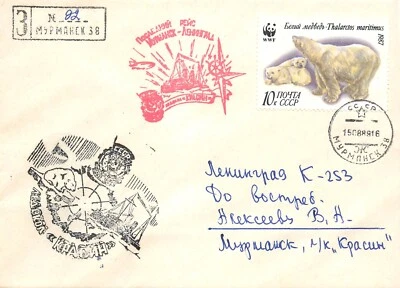 З № 82
МУРМАНСК 38
ПОСЛЕДНИЙ РЕЙС
МУРМАНСК-ЛЕНИНГРАД
"КРАСИН"
Белый медведь-Thalarctos maritimus
1987
WWF
10к ПОЧТА
СССР
СССР
15088916
МУРМАНСК 38
ЛЕДОКОЛ «КРАСИН»
Ленинград К-253
До востреб.
Алексееву В.А.
Мурманск, л/к „Красин"